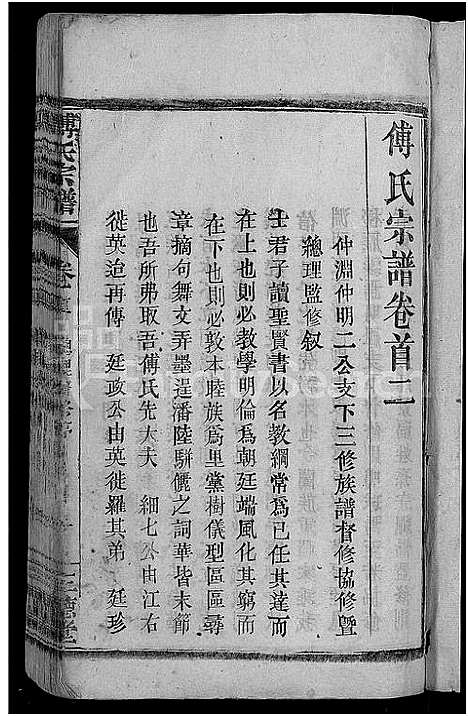 傅氏宗譜卷首二
仲淵仲明二公支下三修族譜督修協修暨
總理監修敘
士君子讀聖賢書以名教綱常爲已任其達而
在上也則必教學明倫爲朝廷端風化其窮而
在下也則必敦本睦族爲里黨樹儀型區區尋
章摘句舞文弄墨逞潘陸駢儷之詞華皆末節
也吾所弗取吾傅氏先大夫 細七公由江右
徙英迨再傳 廷政公由英徙羅其弟 廷珍
傅氏宗譜